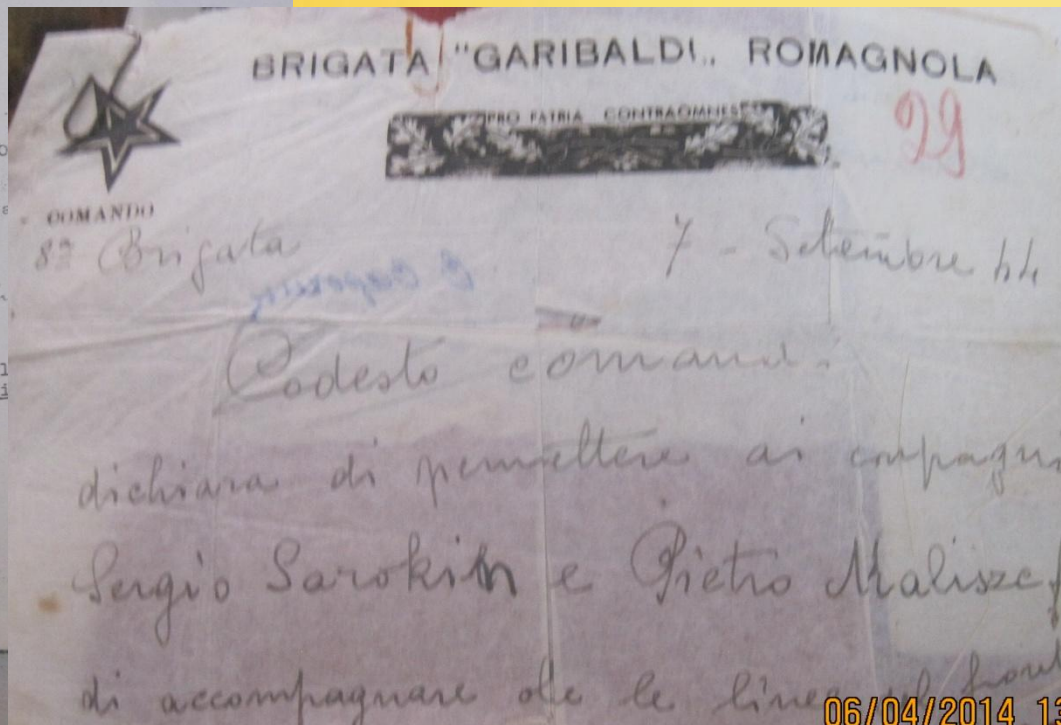 BRIGATA "GARIBALDI„ ROMAGNOLA
PRO PATRIA CONTRAOMNES
29
COMANDO
8ª Brigata
7 - Setembre 44
Codesto comand
dichiara di permettere ai
Sergio Sarokin e Pietro
di accompagnare le linee
06/04/2014 13